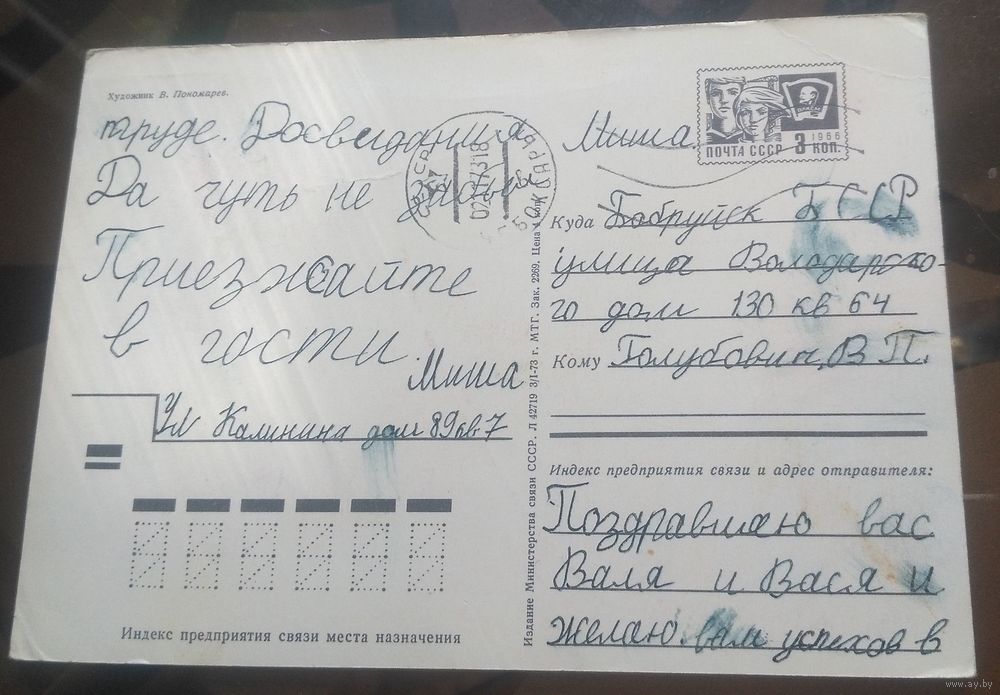 Художник В. Пономарев.
труде. Досведания Миша
Да чуть не забыл
Приезжайте
в гости.
Миша
Ул Калинина дом 89 кв 7
Индекс предприятия связи места назначения
Издание Министерства связи СССР. Л 42719 3/I-73 г. МТГ. Зак. 2269. Цена 4 коп.
ВЛКСМ
1966
ПОЧТА СССР 3 КОП.
Куда Бобруйск БССР
улица Володарско-
го дом 130 кв 64
Кому Голубович В П.
Индекс предприятия связи и адрес отправителя:
Поздравляю вас
Валя и Вася и
желаю вам успехов в
www.ay.by